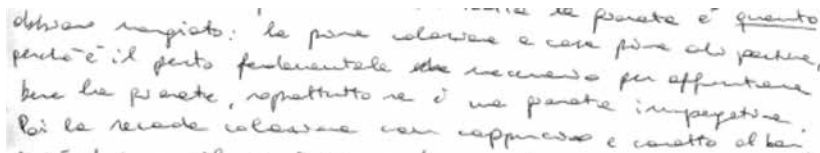 la giornata è quanto
dobbiamo mangiato: la prima colazione a casa prima di partire,
perché è il pasto fondamentale necessario per affrontare
bene la giornata, soprattutto se è una giornata impegnativa.
Poi la seconda colazione con cappuccino e cornetto al bar